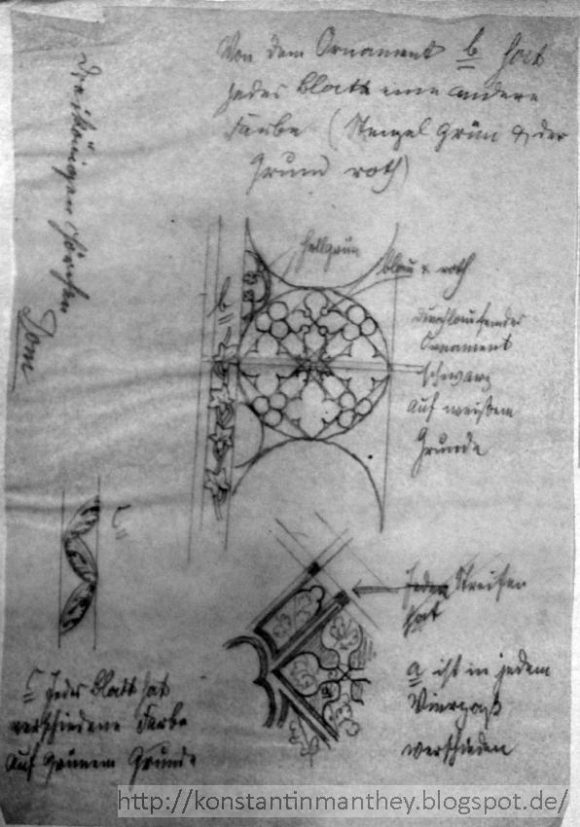 Von dem Ornament b hat
jedes Blatt eine andere
Farbe (Stengel Grün & der
Grund roth)
Dreikönigen
Dom
hellgrün
blau & roth
b
durchlaufendes
Ornament
schwarz
auf weißem
Grunde
c
Jeden Streifen
hat
a ist in jedem
Vierpaß
verschieden
c Jedes Blatt hat
verschiedene Farbe
auf grünem Grunde
http://konstantinmanthey.blogspot.de/